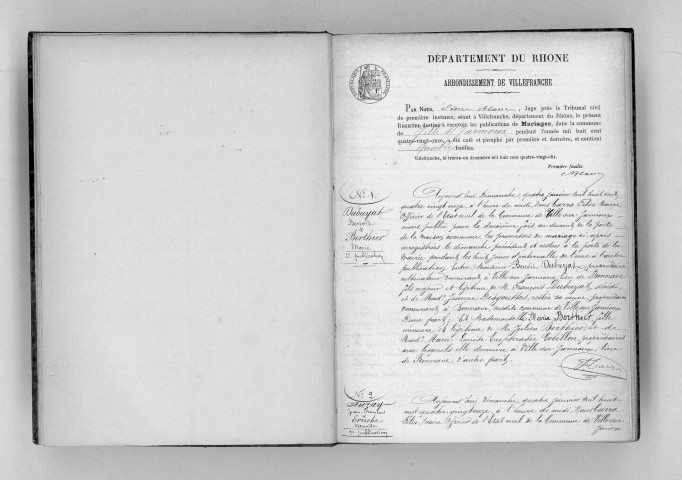 DÉPARTEMENT DU RHONE
ARRONDISSEMENT DE VILLEFRANCHE
PAR NOUS, Juge près le Tribunal civil
de première instance, séant à Villefranche, département du Rhône, le présent
REGISTRE destiné à recevoir les publications de Mariages, dans la commune
de Ville s/ Jarnioux pendant l'année mil huit cent
quatre-vingt-onze, a été coté et paraphé par première et dernière, et contient
feuilles.
Villefranche, le trente-un décembre mil huit cent quatre-vingt-dix.
Première feuille.
N° 1
Dubuyat
Benoit
&
Berthier
Marie
2e publication
Aujourd'hui Dimanche, quatre janvier mil huit cent
quatre vingt onze, à l'heure de midi, Nous Carra Félix, Maire
Officier de l'Etat civil de la Commune de Ville sur Jarnioux
avons publié pour la deuxième fois au devant de la porte
de la maison commune les promesses de mariage ci-après
enregistrées le dimanche précédent et restées à la porte de la
mairie pendant les huit jours d'intervalle de l'une à l'autre
publication, entre Monsieur Benoît Dubuyat, propriétaire
cultivateur demeurant à Ville sur Jarnioux, lieu de Bonnave
fils majeur et légitime de M. François Dubuyat, décédé
et de Made Jeanne Desgouttes, restée sa veuve, propriétaire
demeurant à Bonnave, susdite commune de Ville sur Jarnioux
d'une part; Et Mademoiselle Marie Berthier, fille
mineure & légitime de M. Julien Berthier, et de
Made Marie Louise Euphrasie propriétaires
avec lesquels elle demeure à Ville sur Jarnioux, lieu
de Bonnave, d'autre part.
Carra
N° 2
Jean
2e publication
Aujourd'hui Dimanche, quatre janvier mil huit
cent quatre vingt onze, à l'heure de midi, Nous Carra
Félix, Maire Officier de l'Etat civil de la Commune de Ville sur
Jarnioux